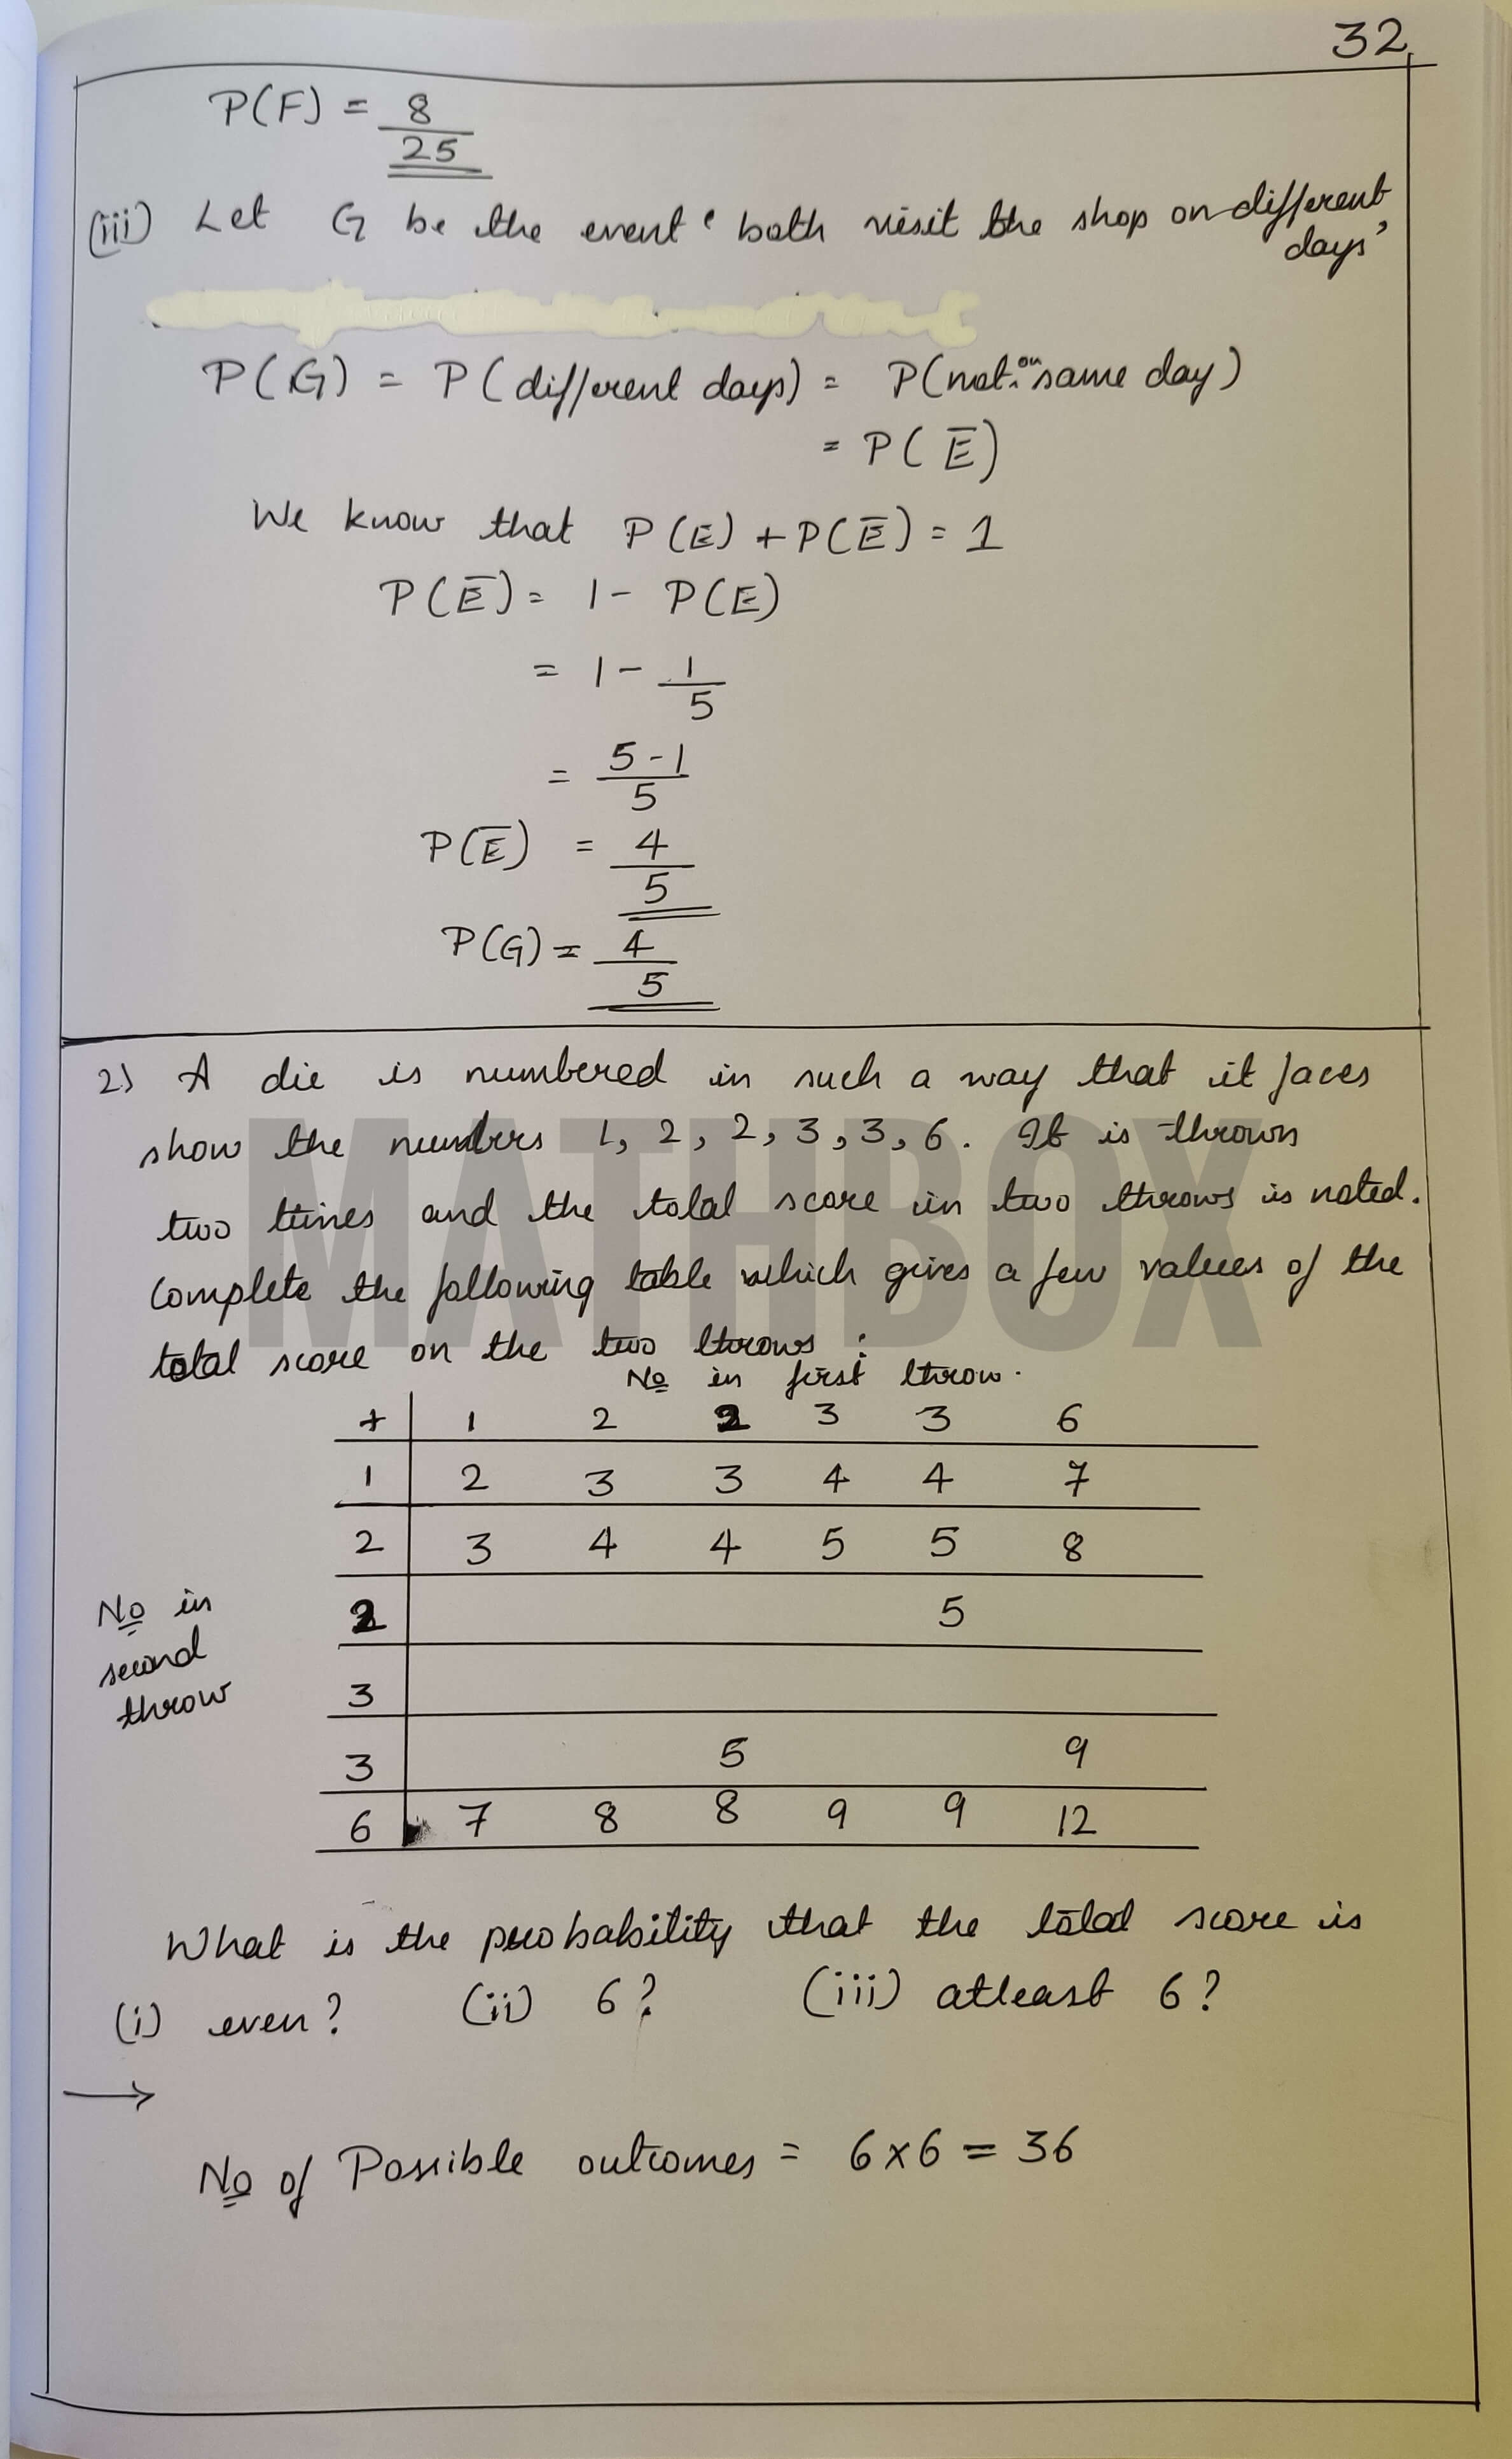 32
P(F) = 8/25
(iii) Let G be the event ' both visit the shop on different days'
P(G) = P(different days) = P(not on same day)
= P(E̅)
We know that P(E) + P(E̅) = 1
P(E̅) = 1 - P(E)
= 1 - 1/5
= 5-1/5
P(E̅) = 4/5
P(G) = 4/5
2) A die is numbered in such a way that it faces
show the numbers 1, 2, 2, 3, 3, 6. It is thrown
two times and the total score in two throws is noted.
Complete the following table which gives a few values of the
total score on the two throws :
No in first throw.
+ 1 2 2 3 3 6
1 2 3 3 4 4 7
2 3 4 4 5 5 8
2 5
3
3 5 9
6 7 8 8 9 9 12
No in
second
throw
What is the probability that the total score is
(i) even? (ii) 6? (iii) atleast 6?
→
No of Possible outcomes = 6x6 = 36
MATHBOX